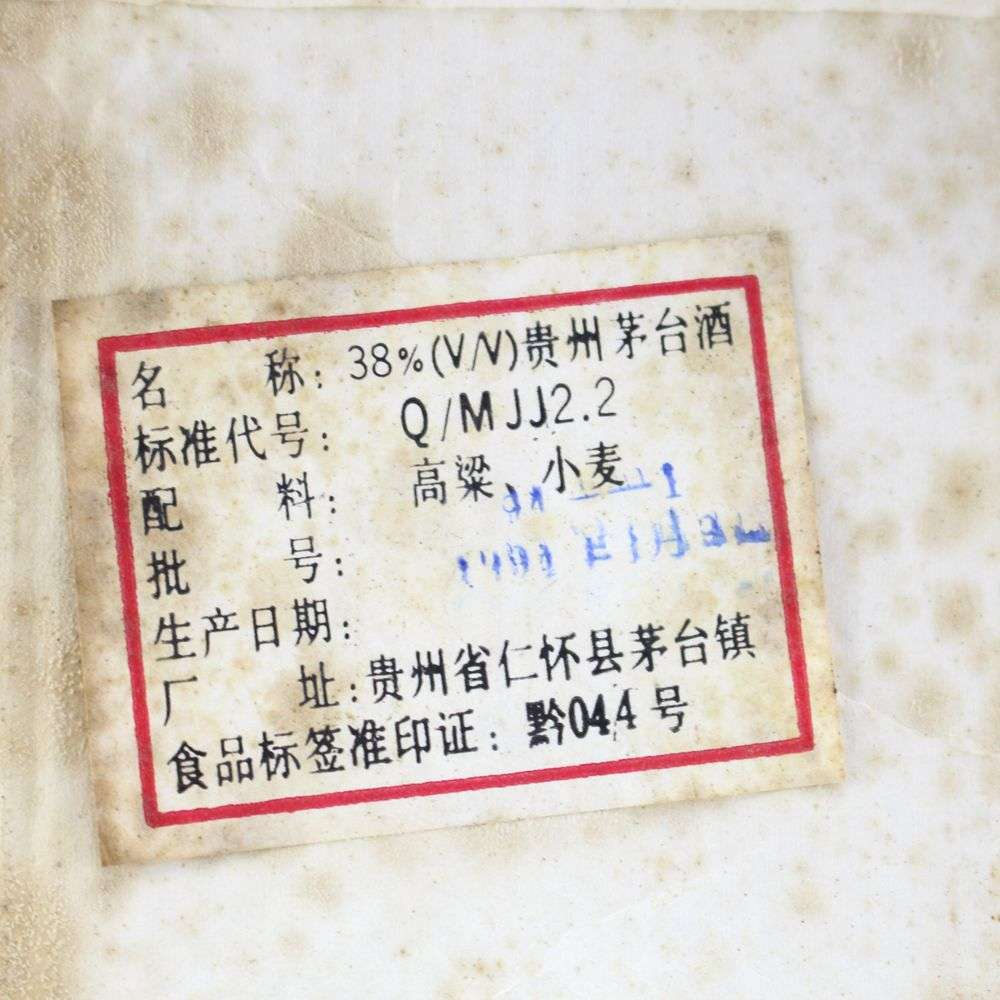 名 称: 38%(V/V)贵州茅台酒
标准代号: Q/MJJ2.2
配 料: 高粱、小麦
批 号:
生产日期:
厂 址:贵州省仁怀县茅台镇
食品标签准印证: 黔044号